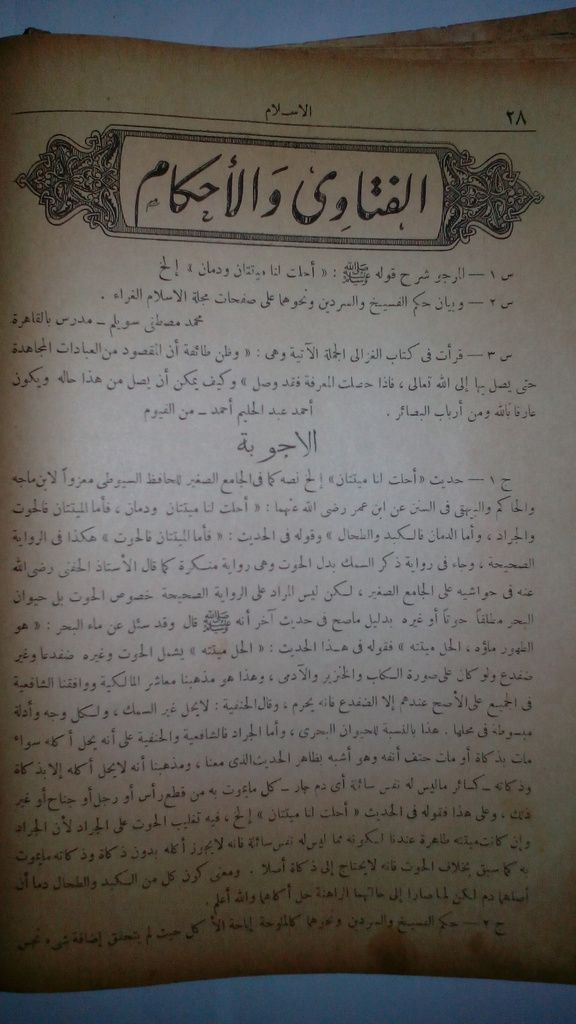 ٢٨
الاسلام
الفتاوى والأحكام
س ١ — المرجو شرح قوله ﷺ : « أحلت لنا ميتتان ودمان » إلخ
س ٢ — وبيان حكم الفسيخ والسردين ونحوهما على صفحات مجلة الاسلام الغراء .
محمد مصطفى سويلم – مدرس بالقاهرة
س ٣ — قرأت فى كتاب الغزالى الجملة الآتية وهى : « وظن طائفة أن المقصود من العبادات المجاهدة
حتى يصل بها إلى الله تعالى ، فاذا حصلت المعرفة فقد وصل » وكيف يمكن أن يصل من هذا حاله ويكون
عارفا بالله ومن أرباب البصائر . أحمد عبد الحليم أحمد – من الفيوم
الاجوبة
ج ١ — حديث « أحلت لنا ميتتان » إلخ نصه كما فى الجامع الصغير للحافظ السيوطى معزواً لابن ماجه
والحاكم والبيهقى فى السنن عن ابن عمر رضى الله عنهما : « أحلت لنا ميتتان ودمان ، فأما الميتتان فالحوت
والجراد ، وأما الدمان فالكبد والطحال » وقوله فى الحديث : « فأما الميتتان فالحوت » هكذا فى الرواية
الصحيحة ، وجاء فى رواية ذكر السمك بدل الحوت وهى رواية منكرة كما قال الأستاذ الحفنى رضى الله
عنه فى حواشيه على الجامع الصغير ، لكن ليس المراد على الرواية الصحيحة خصوص الحوت بل حيوان
البحر مطلقاً حوتاً أو غيره بدليل ماصح فى حديث آخر أنه ﷺ قال وقد سئل عن ماء البحر : « هو
الطهور ماؤه ، الحل ميتته » فقوله فى هذا الحديث : « الحل ميتته » يشمل الحوت وغيره ضفدعا وغير
ضفدع ولو كان على صورة الكلب والخنزير والآدمى ، وهذا هو مذهبنا معاشر المالكية ووافقنا الشافعية
فى الجميع على الأصح عندهم إلا الضفدع فانه يحرم ، وقال الحنفية : لايحل غير السمك ، ولكل وجه وأدلة
مبسوطة فى محلها . هذا بالنسبة للحيوان البحرى ، وأما الجراد فالشافعية والحنفية على أنه يحل أكله سواء
مات بذكاة أو مات حتف أنفه وهو أشبه بظاهر الحديث الذى معنا ، ومذهبنا أنه لايحل أكله إلا بذكاة
وذكاته – كسائر ماليس له نفس سائلة أى دم جار – كل مايموت به من قطع رأس أو رجل أو جناح أو غير
ذلك ، وعلى هذا فقوله فى الحديث « أحلت لنا ميتتان » إلخ ، فيه تغليب الحوت على الجراد لأن الجراد
وإن كانت ميتته طاهرة عندنا لكونه مما ليس له نفس سائلة فانه لايجوز أكله بدون ذكاة وذكاته مايموت
به كما سبق بخلاف الحوت فانه لايحتاج إلى ذكاة أصلا . ومعنى كون كل من الكبد والطحال دما أن
أصلهما دم لكن لما صارا إلى حالتهما الراهنة حل أكلهما والله أعلم .
ج ٢ — حكم الفسيخ والسردين ونحوهما كالملوحة إباحة الأكل حيث لم يتحقق إضافة شىء نجس